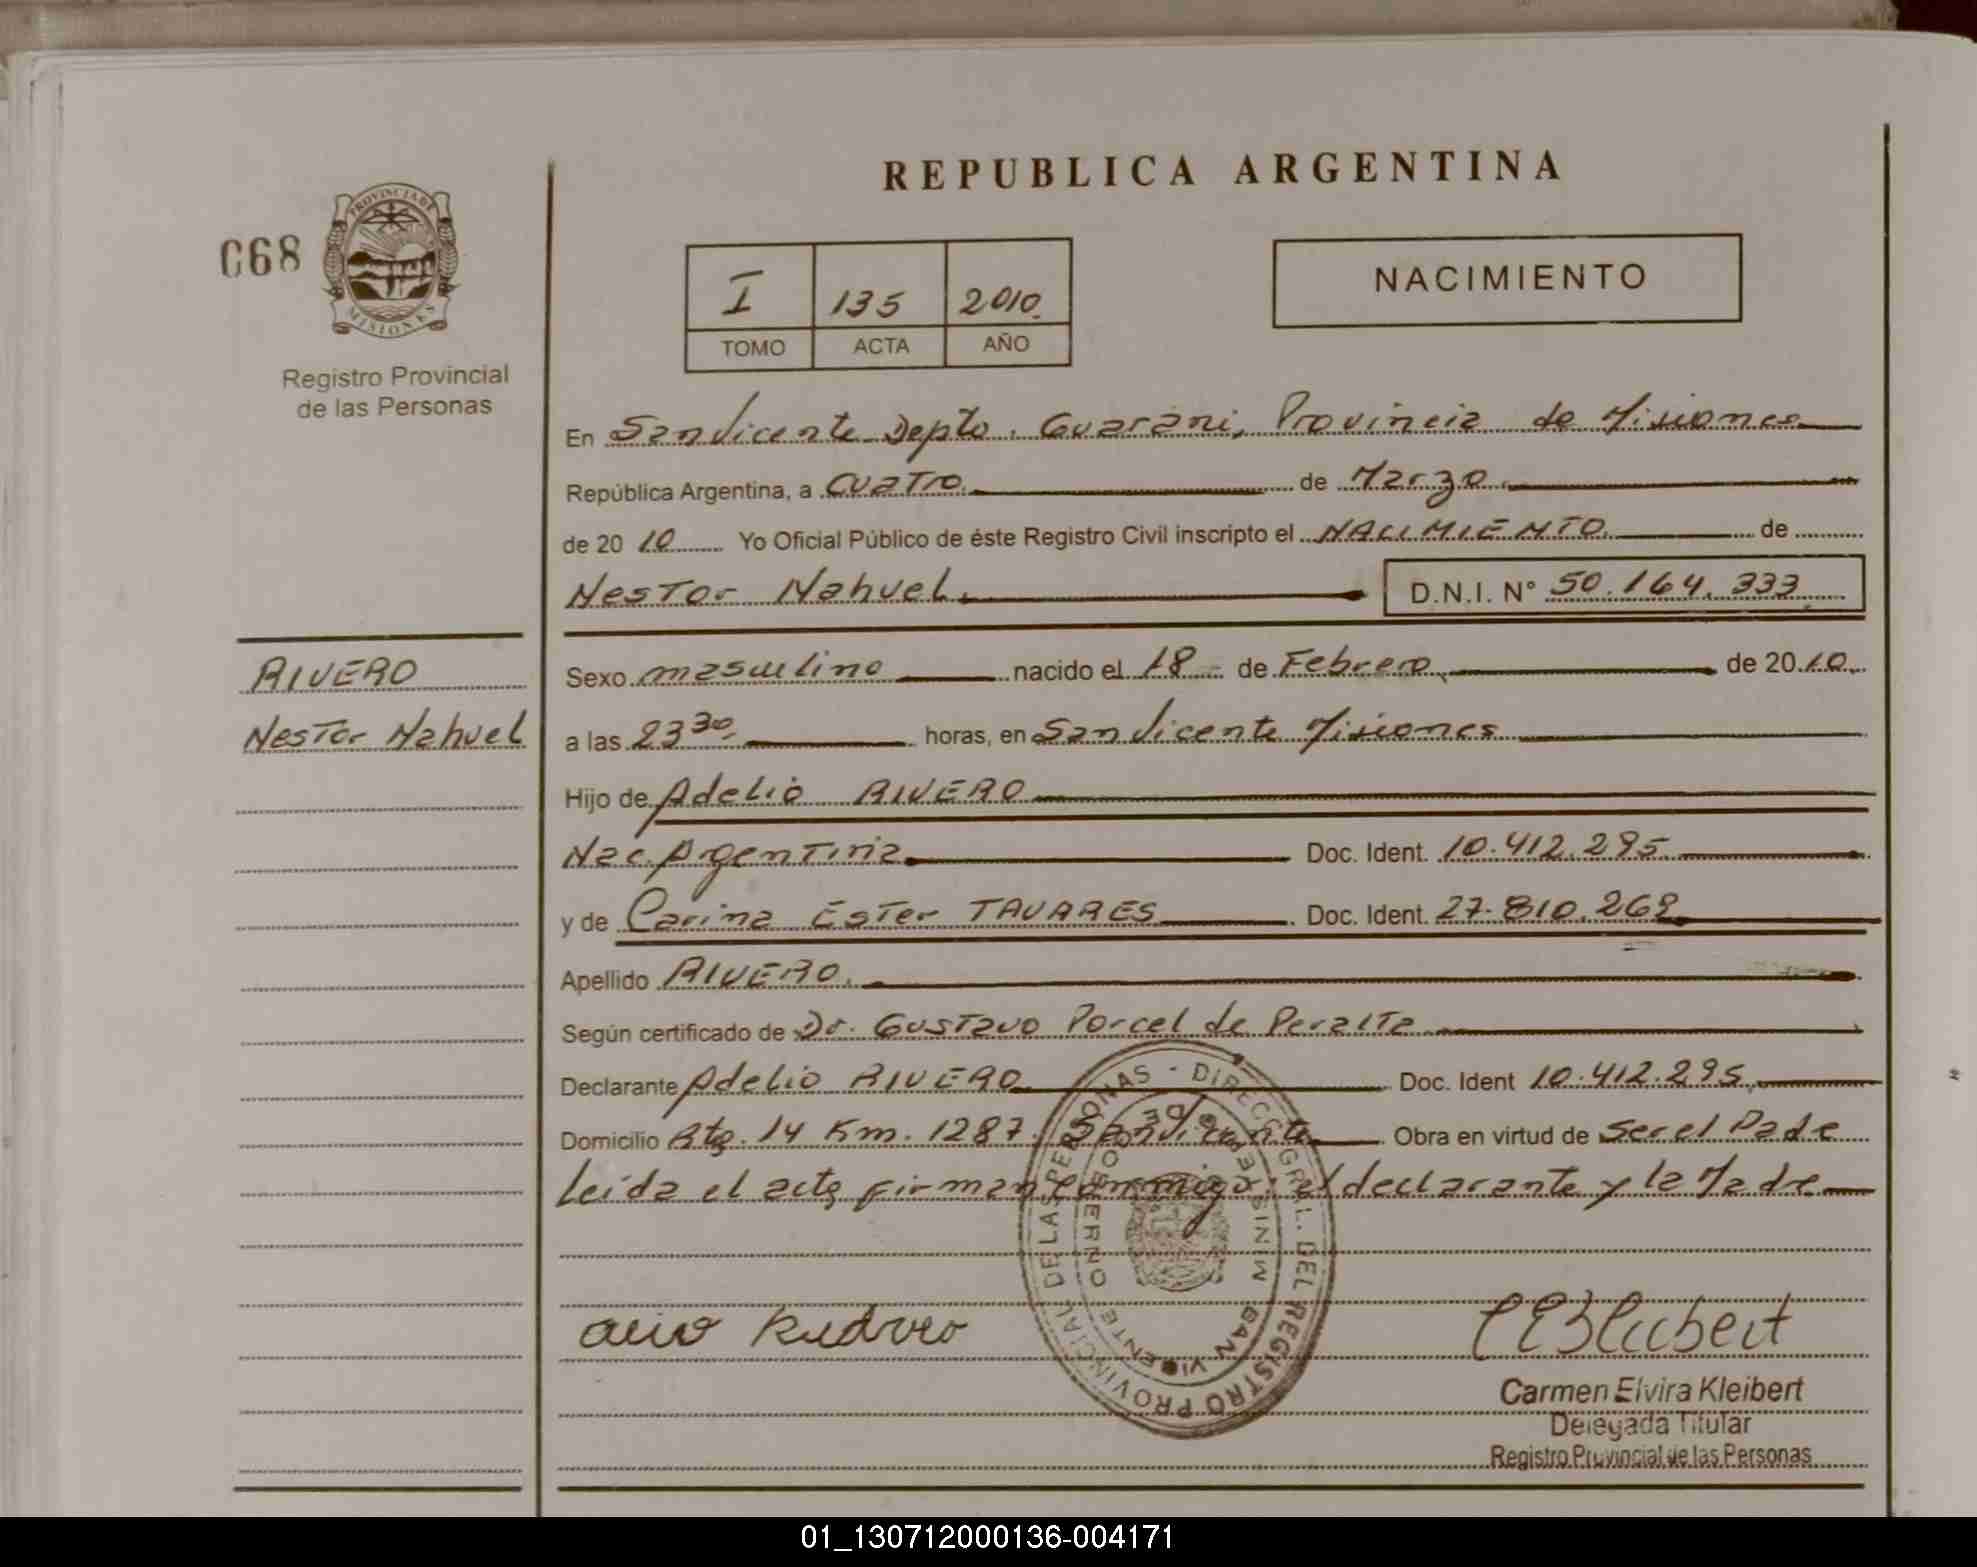 REPUBLICA ARGENTINA
C68
PROVINCIA DE
MISIONES
Registro Provincial
de las Personas
I 135 2010
TOMO ACTA AÑO
NACIMIENTO
En San Vicente Depto. Guaraní, Provincia de Misiones
República Argentina, a cuatro de Marzo
de 2010 Yo Oficial Público de éste Registro Civil inscripto el NACIMIENTO de
Nestor Nahuel D.N.I. N° 50.164.333
RIVERO
Nestor Nahuel
Sexo masculino nacido el 18 de Febrero de 2010
a las 23 30 horas, en San Vicente Misiones
Hijo de Adelio RIVERO
Nac. Argentina Doc. Ident. 10.412.295
y de Carina Ester TAVARES Doc. Ident. 27.810.269
Apellido RIVERO
Según certificado de Dr. Gustavo Porcel de Peralta
Declarante Adelio RIVERO Doc. Ident 10.412.295
Domicilio Rta. 14 Km. 1287 San Vicente Obra en virtud de ser el Padre
Leída el acta firman conmigo el declarante y la Madre
DIREC. GRAL. DEL REGISTRO PROVINCIAL DE LAS PERSONAS
SAN VICENTE
Carmen Elvira Kleibert
Delegada Titular
Registro Provincial de las Personas
01_130712000136-004171